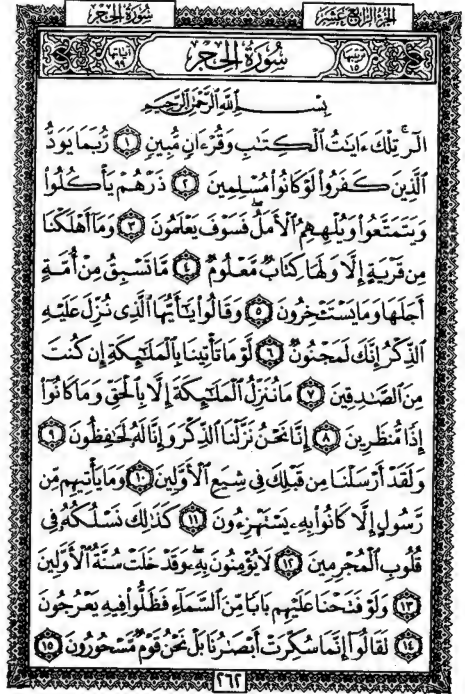 سُورَةُ الحِجْر
الجُزْءُ الرَّابِعَ عَشَرَ
آيَاتُهَا ٩٩
سُورَةُ الحِجْر
تَرْتِيبُهَا ١٥
بِسْمِ ٱللَّهِ ٱلرَّحْمَٰنِ ٱلرَّحِيمِ
الٓر ۚ تِلْكَ ءَايَٰتُ ٱلْكِتَٰبِ وَقُرْءَانٍ مُّبِينٍ ١ رُّبَمَا يَوَدُّ
ٱلَّذِينَ كَفَرُوا۟ لَوْ كَانُوا۟ مُسْلِمِينَ ٢ ذَرْهُمْ يَأْكُلُوا۟
وَيَتَمَتَّعُوا۟ وَيُلْهِهِمُ ٱلْأَمَلُ ۖ فَسَوْفَ يَعْلَمُونَ ٣ وَمَآ أَهْلَكْنَا
مِن قَرْيَةٍ إِلَّا وَلَهَا كِتَابٌ مَّعْلُومٌ ٤ مَّا تَسْبِقُ مِنْ أُمَّةٍ
أَجَلَهَا وَمَا يَسْتَـْٔخِرُونَ ٥ وَقَالُوا۟ يَٰٓأَيُّهَا ٱلَّذِى نُزِّلَ عَلَيْهِ
ٱلذِّكْرُ إِنَّكَ لَمَجْنُونٌ ٦ لَّوْ مَا تَأْتِينَا بِٱلْمَلَٰٓئِكَةِ إِن كُنتَ
مِنَ ٱلصَّٰدِقِينَ ٧ مَا نُنَزِّلُ ٱلْمَلَٰٓئِكَةَ إِلَّا بِٱلْحَقِّ وَمَا كَانُوٓا۟
إِذًا مُّنظَرِينَ ٨ إِنَّا نَحْنُ نَزَّلْنَا ٱلذِّكْرَ وَإِنَّا لَهُۥ لَحَٰفِظُونَ ٩
وَلَقَدْ أَرْسَلْنَا مِن قَبْلِكَ فِى شِيَعِ ٱلْأَوَّلِينَ ١٠ وَمَا يَأْتِيهِم مِّن
رَّسُولٍ إِلَّا كَانُوا۟ بِهِۦ يَسْتَهْزِءُونَ ١١ كَذَٰلِكَ نَسْلُكُهُۥ فِى
قُلُوبِ ٱلْمُجْرِمِينَ ١٢ لَا يُؤْمِنُونَ بِهِۦ ۖ وَقَدْ خَلَتْ سُنَّةُ ٱلْأَوَّلِينَ
١٣ وَلَوْ فَتَحْنَا عَلَيْهِم بَابًا مِّنَ ٱلسَّمَآءِ فَظَلُّوا۟ فِيهِ يَعْرُجُونَ
١٤ لَقَالُوٓا۟ إِنَّمَا سُكِّرَتْ أَبْصَٰرُنَا بَلْ نَحْنُ قَوْمٌ مَّسْحُورُونَ ١٥
٢٦٢